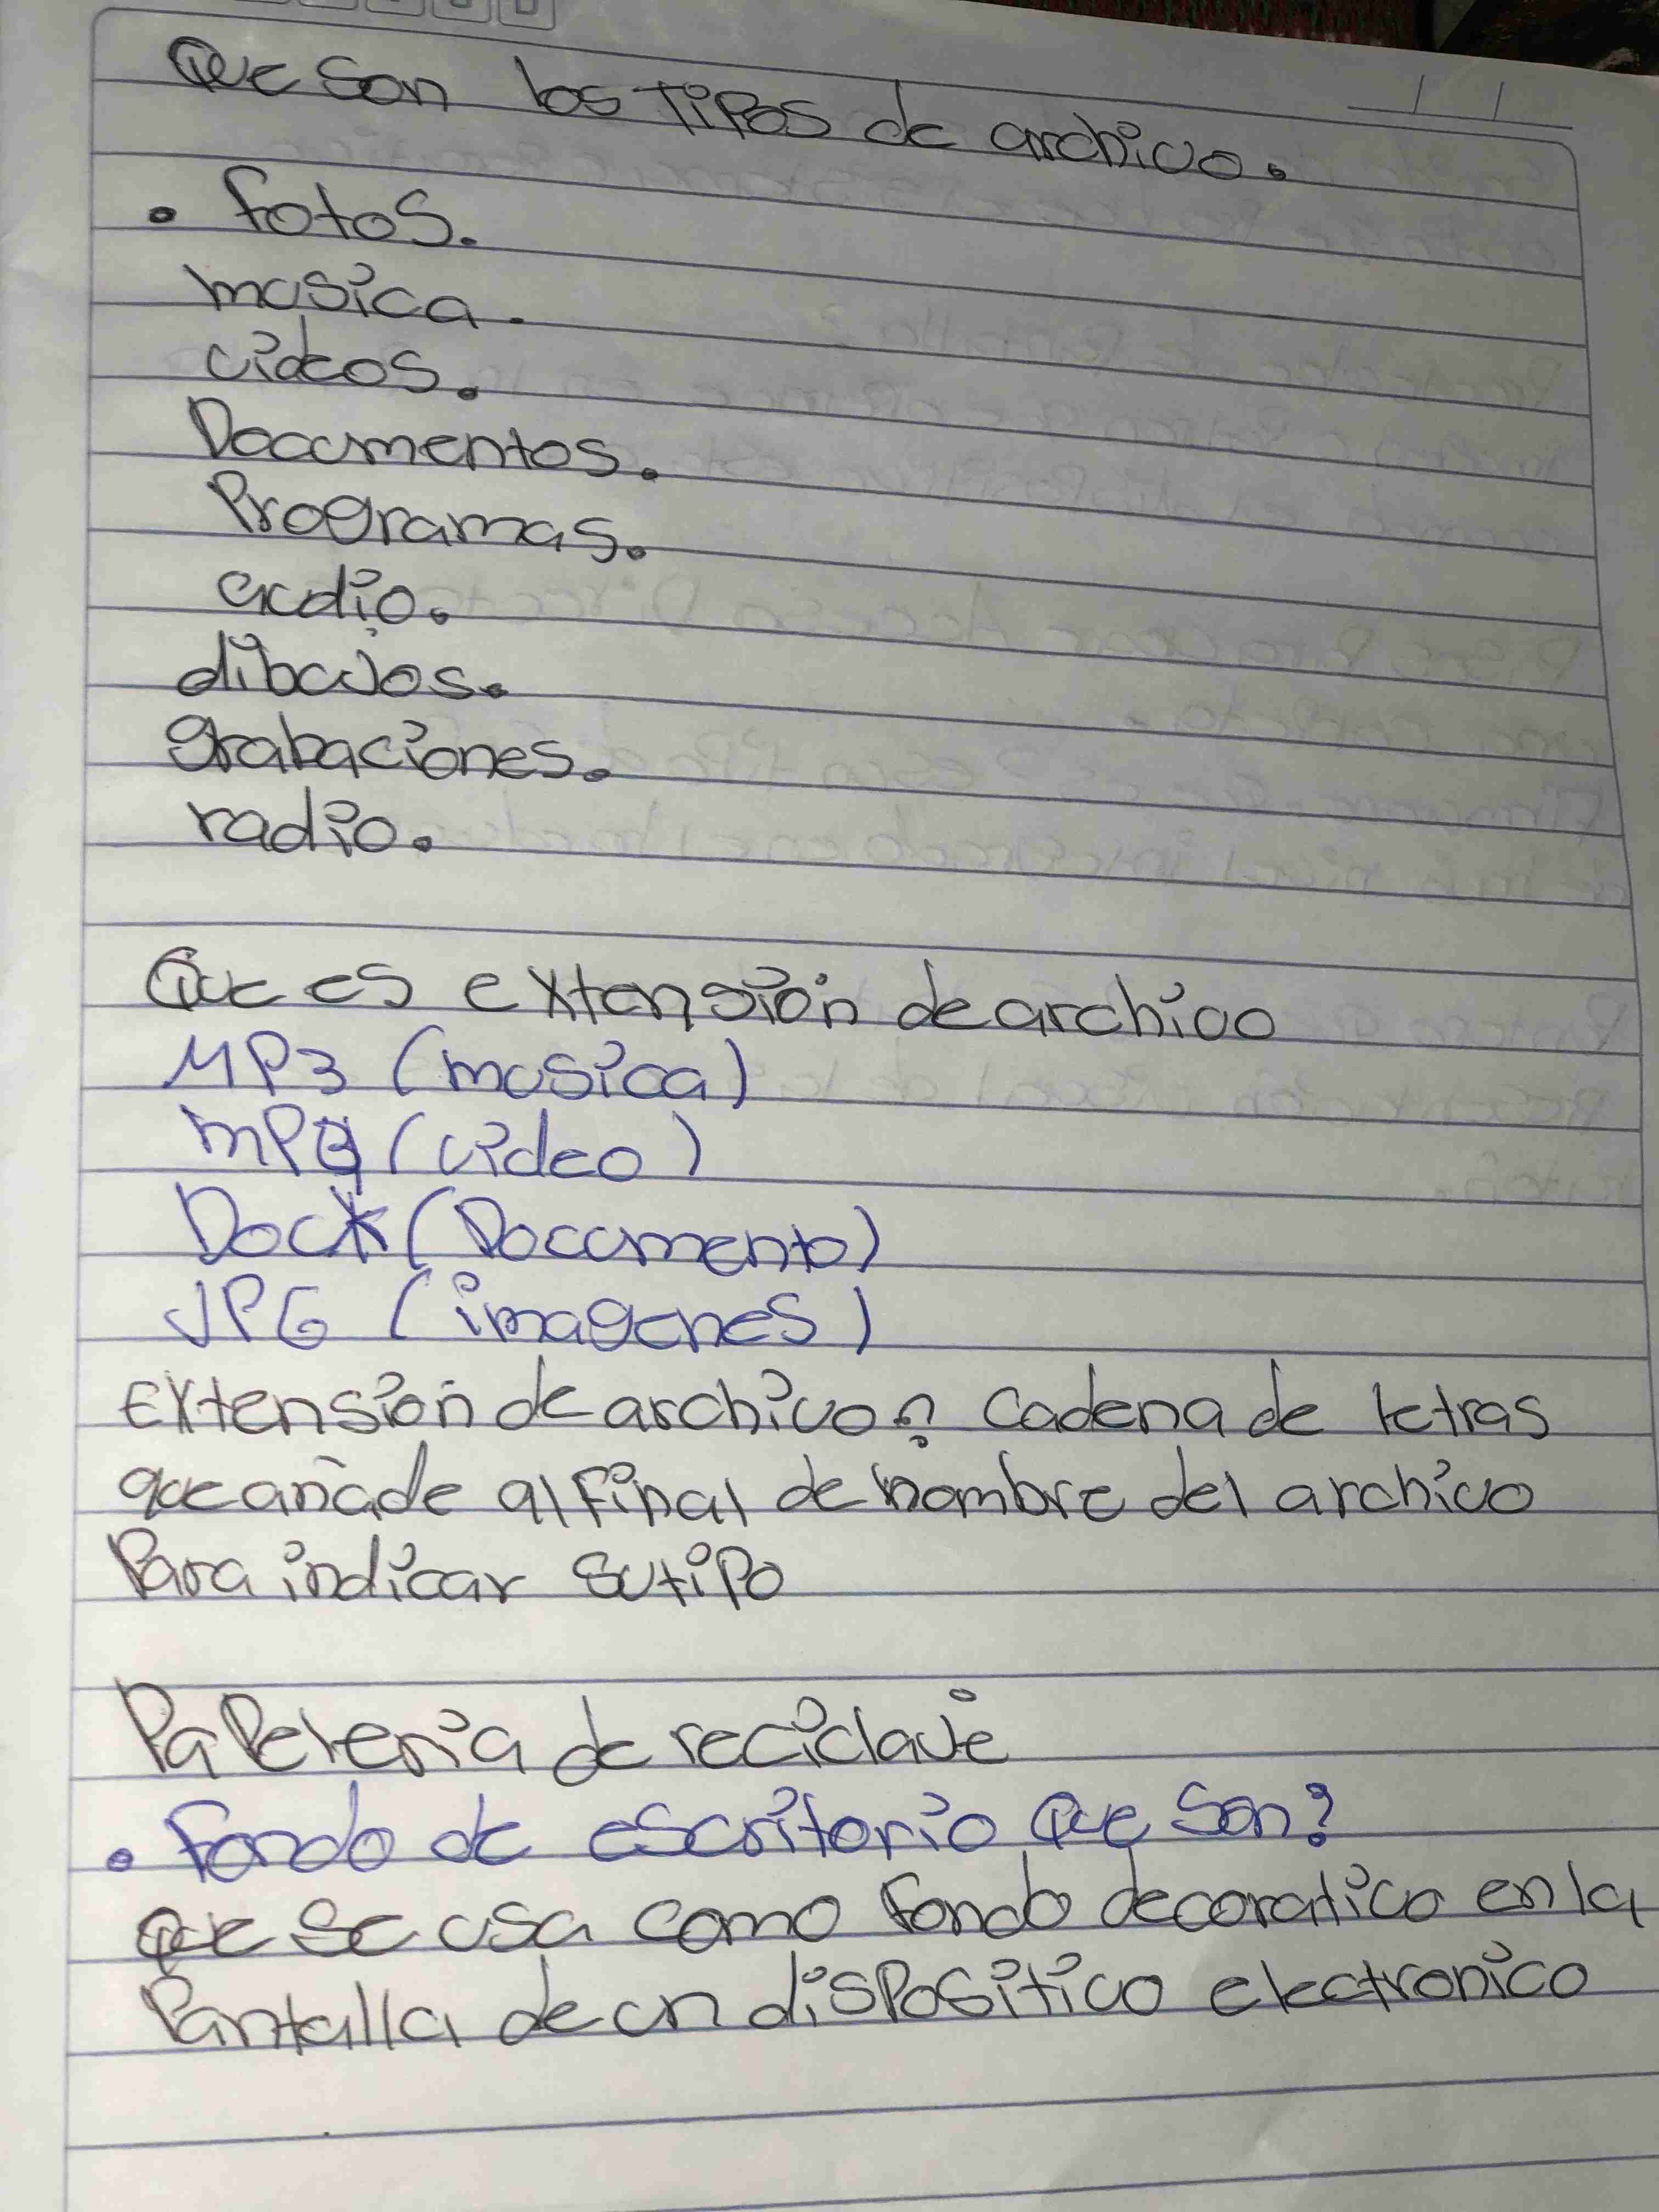 Que son los tipos de archivo.
• fotos.
musica.
videos.
Documentos.
Programas.
audio.
dibujos.
grabaciones.
radio.
Que es extensión de archivo
MP3 (musica)
MP4 (video)
Docx (Documento)
JPG (imagenes)
Extensión de archivo? Cadena de letras
que añade al final de nombre del archivo
Para indicar su tipo
Papeleria de reciclave
• Fondo de escritorio Que son?
Que se usa como fondo decorativo en la
Pantalla de un dispositivo electronico